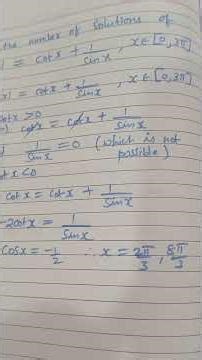 the number of solutions of
| = cotx + 1/sinx , x ∈ [0, 3π]
x| = cotx + 1/sinx , x ∈ [0, 3π]
cotx > 0
cotx = cotx + 1/sinx
1/sinx = 0 (which is not
possible)
t x < 0
cotx = cotx + 1/sinx
-2cotx = 1/sinx
cosx = -1/2 ∴ x = 2π/3 , 8π/3